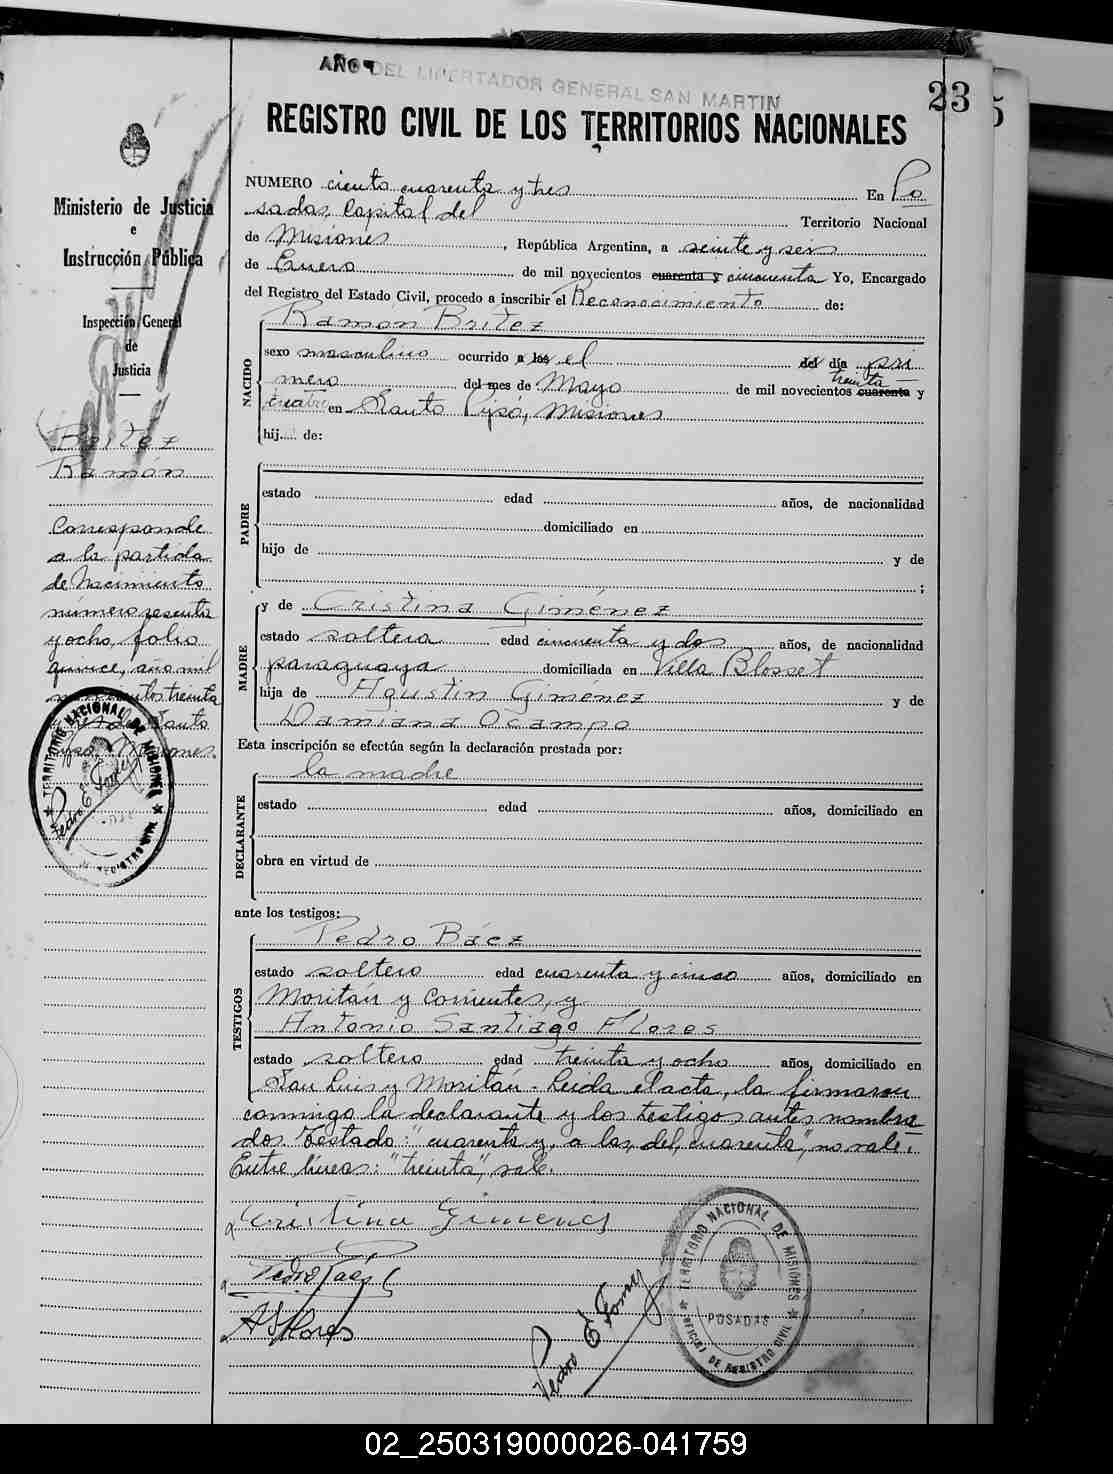 AÑO DEL LIBERTADOR GENERAL SAN MARTIN
23
5
REGISTRO CIVIL DE LOS TERRITORIOS NACIONALES
Ministerio de Justicia
e
Instrucción Pública
Inspección General
de
Justicia
Britez
Ramón
Corresponde
a la partida
de Nacimiento
número sesenta
y ocho, folio
quince, año mil
novecientos treinta
Santo
Pipó, Misiones.
TERRITORIO NACIONAL DE MISIONES
REGISTRO CIVIL
NUMERO ciento cuarenta y tres En Po
sadas, Capital del Territorio Nacional
de Misiones, República Argentina, a veinte y seis
de Enero de mil novecientos cuarenta y cincuenta Yo, Encargado
del Registro del Estado Civil, procedo a inscribir el Reconocimiento de:
Ramon Britez
NACIDO
sexo masculino ocurrido a las el del día pri
mero del mes de Mayo de mil novecientos cuarenta treinta y
cuatro en Santo Pipó, Misiones
hij.... de:
PADRE
estado edad años, de nacionalidad
domiciliado en
hijo de y de
;
MADRE
y de Cristina Giménez
estado soltera edad cincuenta y dos años, de nacionalidad
paraguaya domiciliada en Villa Blosset
hija de Agustin Giménez y de
Damiana Ocampo
Esta inscripción se efectúa según la declaración prestada por:
la madre
DECLARANTE
estado edad años, domiciliado en
obra en virtud de
ante los testigos:
TESTIGOS
Pedro Báez
estado soltero edad cuarenta y cinco años, domiciliado en
Moritán y Corrientes, y
Antonio Santiago Flores
estado soltero edad treinta y ocho años, domiciliado en
San Luis y Moritán - Leida el acta, la firmaron
conmigo la declarante y los testigos antes nombra
dos. Testado: "cuarenta y, a las, del, cuarenta", no vale.
Entre líneas: "treinta", vale.
Cristina Gimenes
Pedro Baés
A S Flores
TERRITORIO NACIONAL DE MISIONES
POSADAS
OFICINA DE REGISTRO CIVIL
02_250319000026-041759